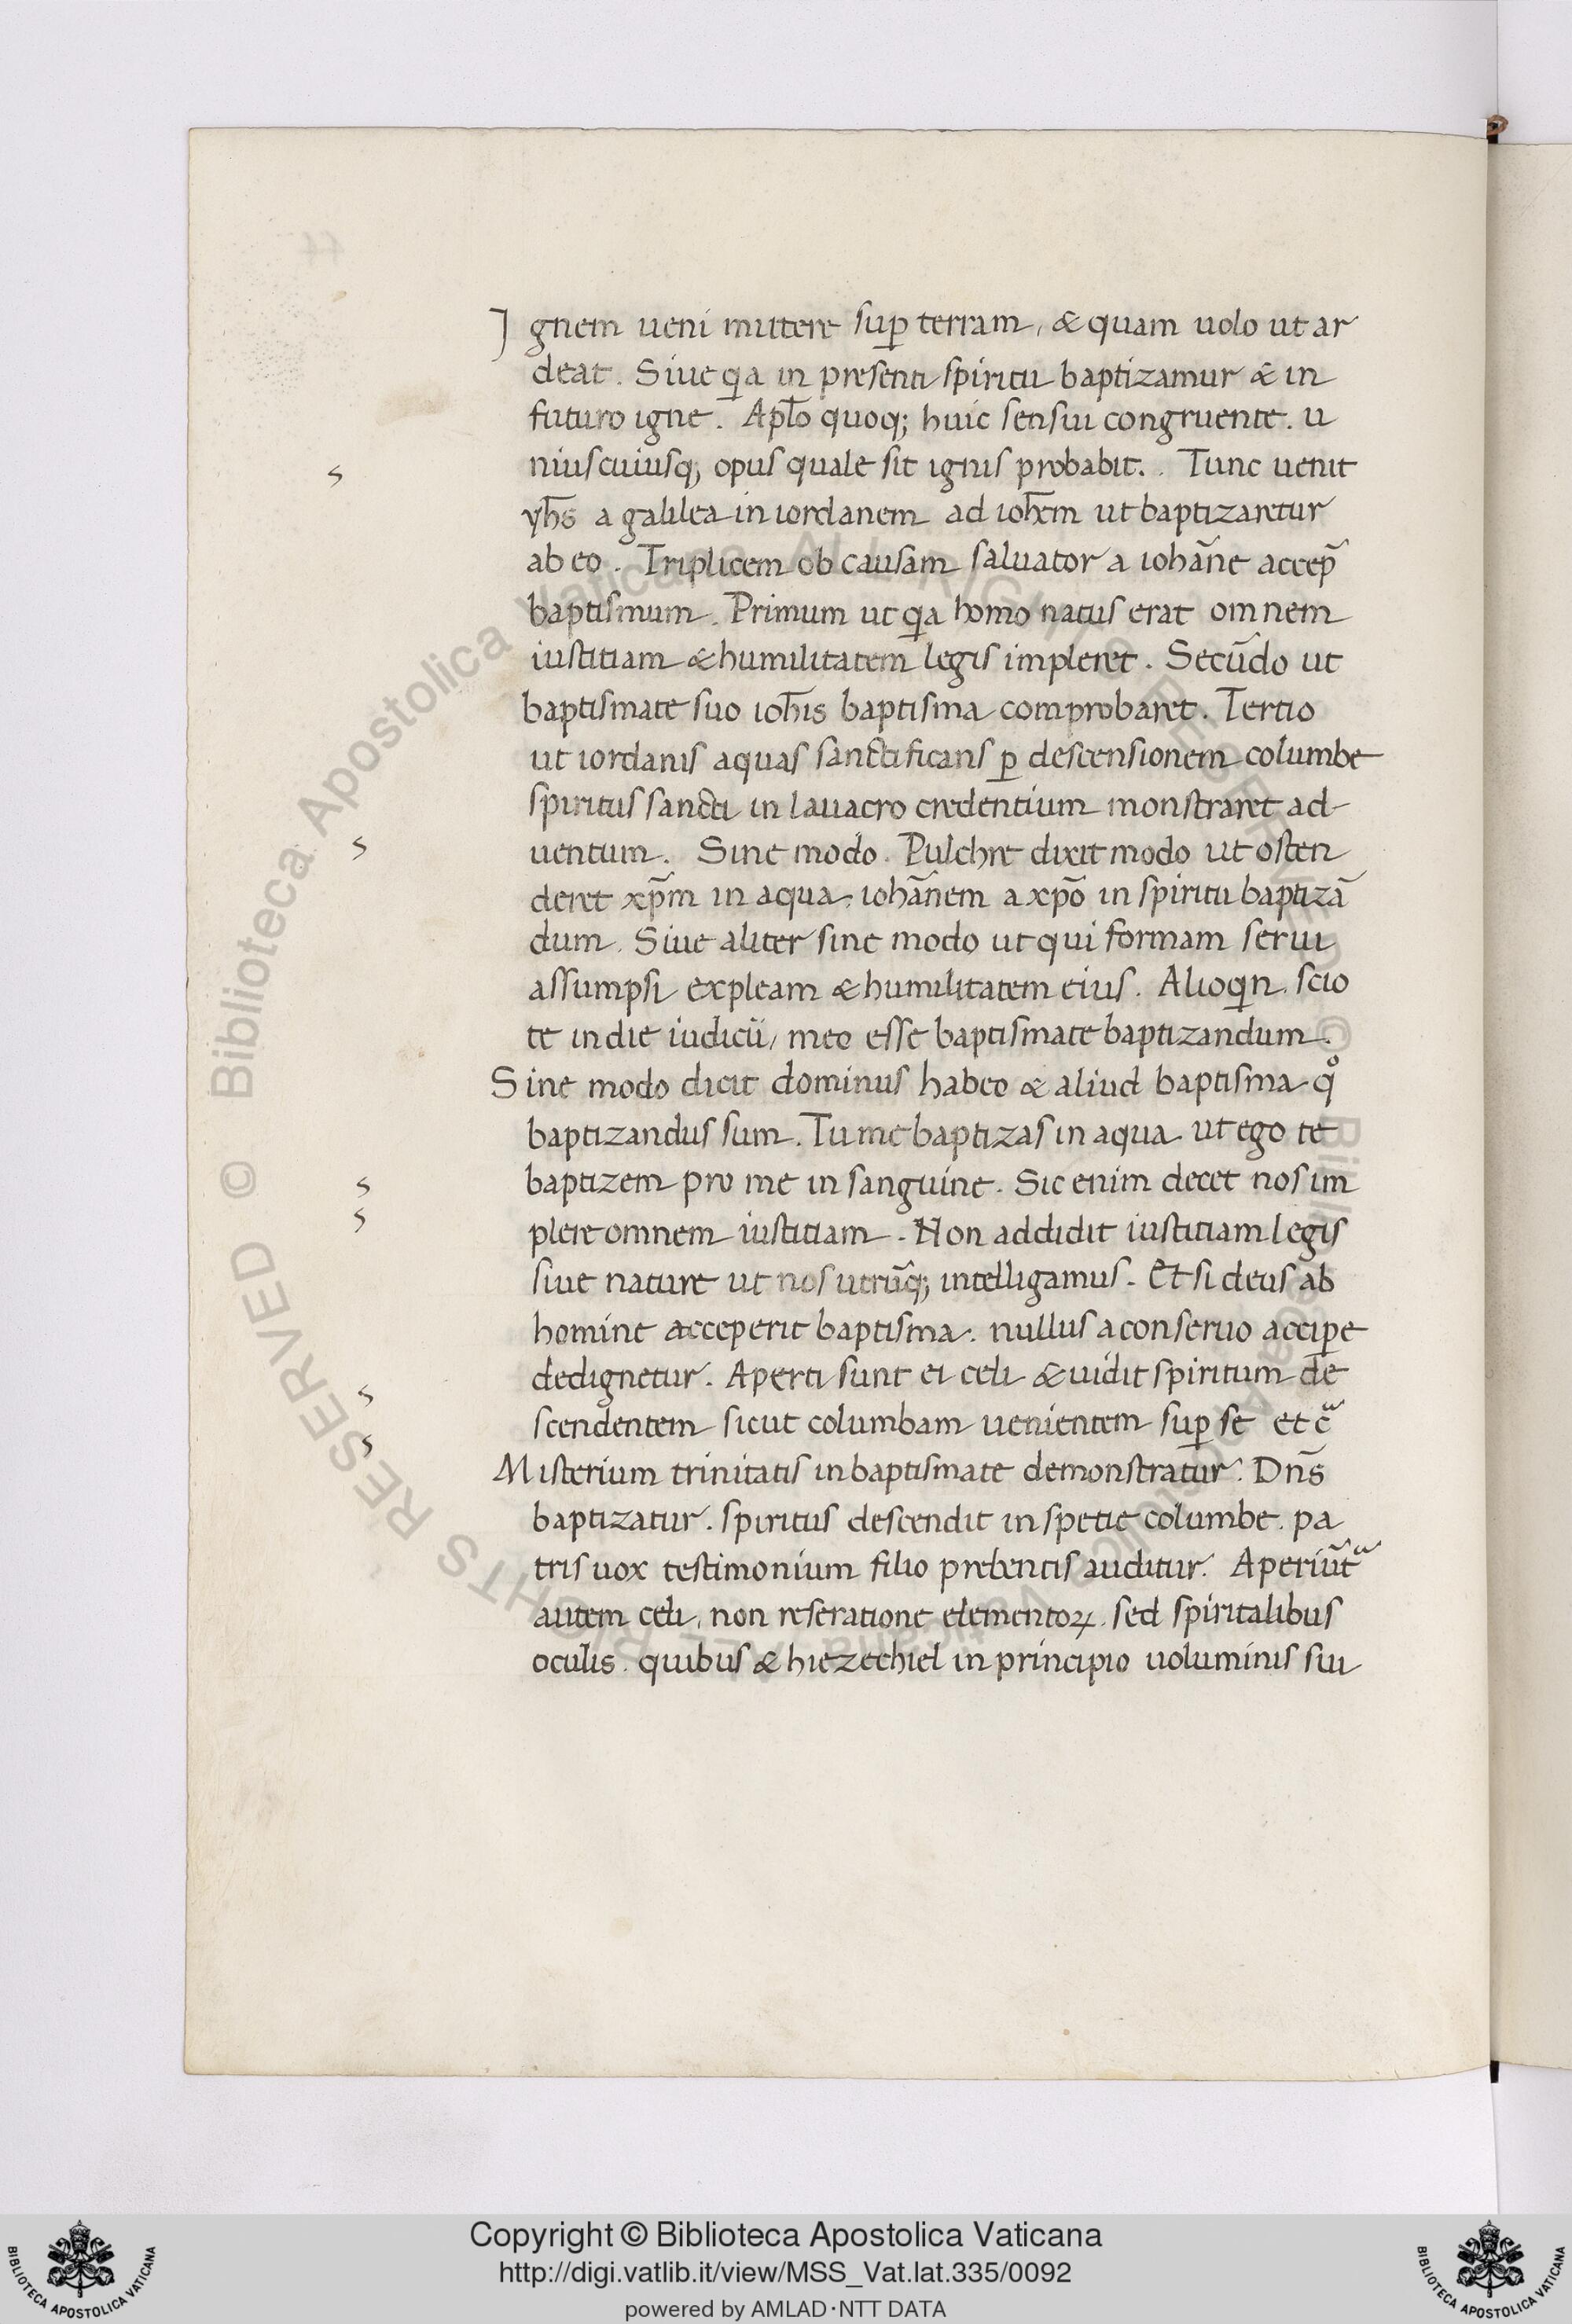 Ignem ueni mittere suꝑ terram, & quam uolo ut ar
deat. Siue qͥa in presenti spiritu baptizamur & in
futuro igne. Apl̅o quoq; huic sensui congruente. u
niuscuiusq; opus quale sit ignis probabit. . Tunc uenit
yh̅s a galilea in iordanem ad ioh̅em ut baptizaretur
ab eo. Triplicem ob causam saluator a ioha̅ne accep̅
baptismum. Primum ut qͥa homo natus erat omnem
iustitiam & humilitatem legis impleret. Secu̅do ut
baptismate suo ioh̅is baptisma comprobaret. Tertio
ut iordanis aquas sanctificans ꝑ descensionem columbe
spiritus sancti in lauacro credentium monstraret ad-
uentum. Sine modo. Pulchre dixit modo ut osten
deret xp̅m in aqua, ioha̅nem a xp̅o in spiritu baptiza̅
dum. Siue aliter sine modo ut qui formam serui
assumpsi expleam & humilitatem eius. Alioqͥn scio
te in die iudicii, meo esse baptismate baptizandum.
Sine modo dicit dominus habeo & aliud baptisma qͦ
baptizandus sum. Tu me baptizas in aqua ut ego te
baptizem pro me in sanguine. Sic enim decet nos im
plere omnem iustitiam. Non addidit iustitiam legis
siue nature ut nos utru̅q; intelligamus. Et si deus ab
homine acceperit baptisma. nullus a conseruo accipe
dedignetur. Aperti sunt ei celi & uidit spiritum de
scendentem sicut columbam uenientem suꝑ se et cͣ
Misterium trinitatis in baptismate demonstratur. Dn̅s
baptizatur. spiritus descendit in spetie columbe. pa
tris uox testimonium filio prebentis auditur. Aperiu̅tͣ
autem celi, non reseratione elementoꝝ. sed spiritalibus
oculis. quibus & hiezechiel in principio uoluminis sui
Copyright © Biblioteca Apostolica Vaticana
http://digi.vatlib.it/view/MSS_Vat.lat.335/0092
powered by AMLAD·NTT DATA